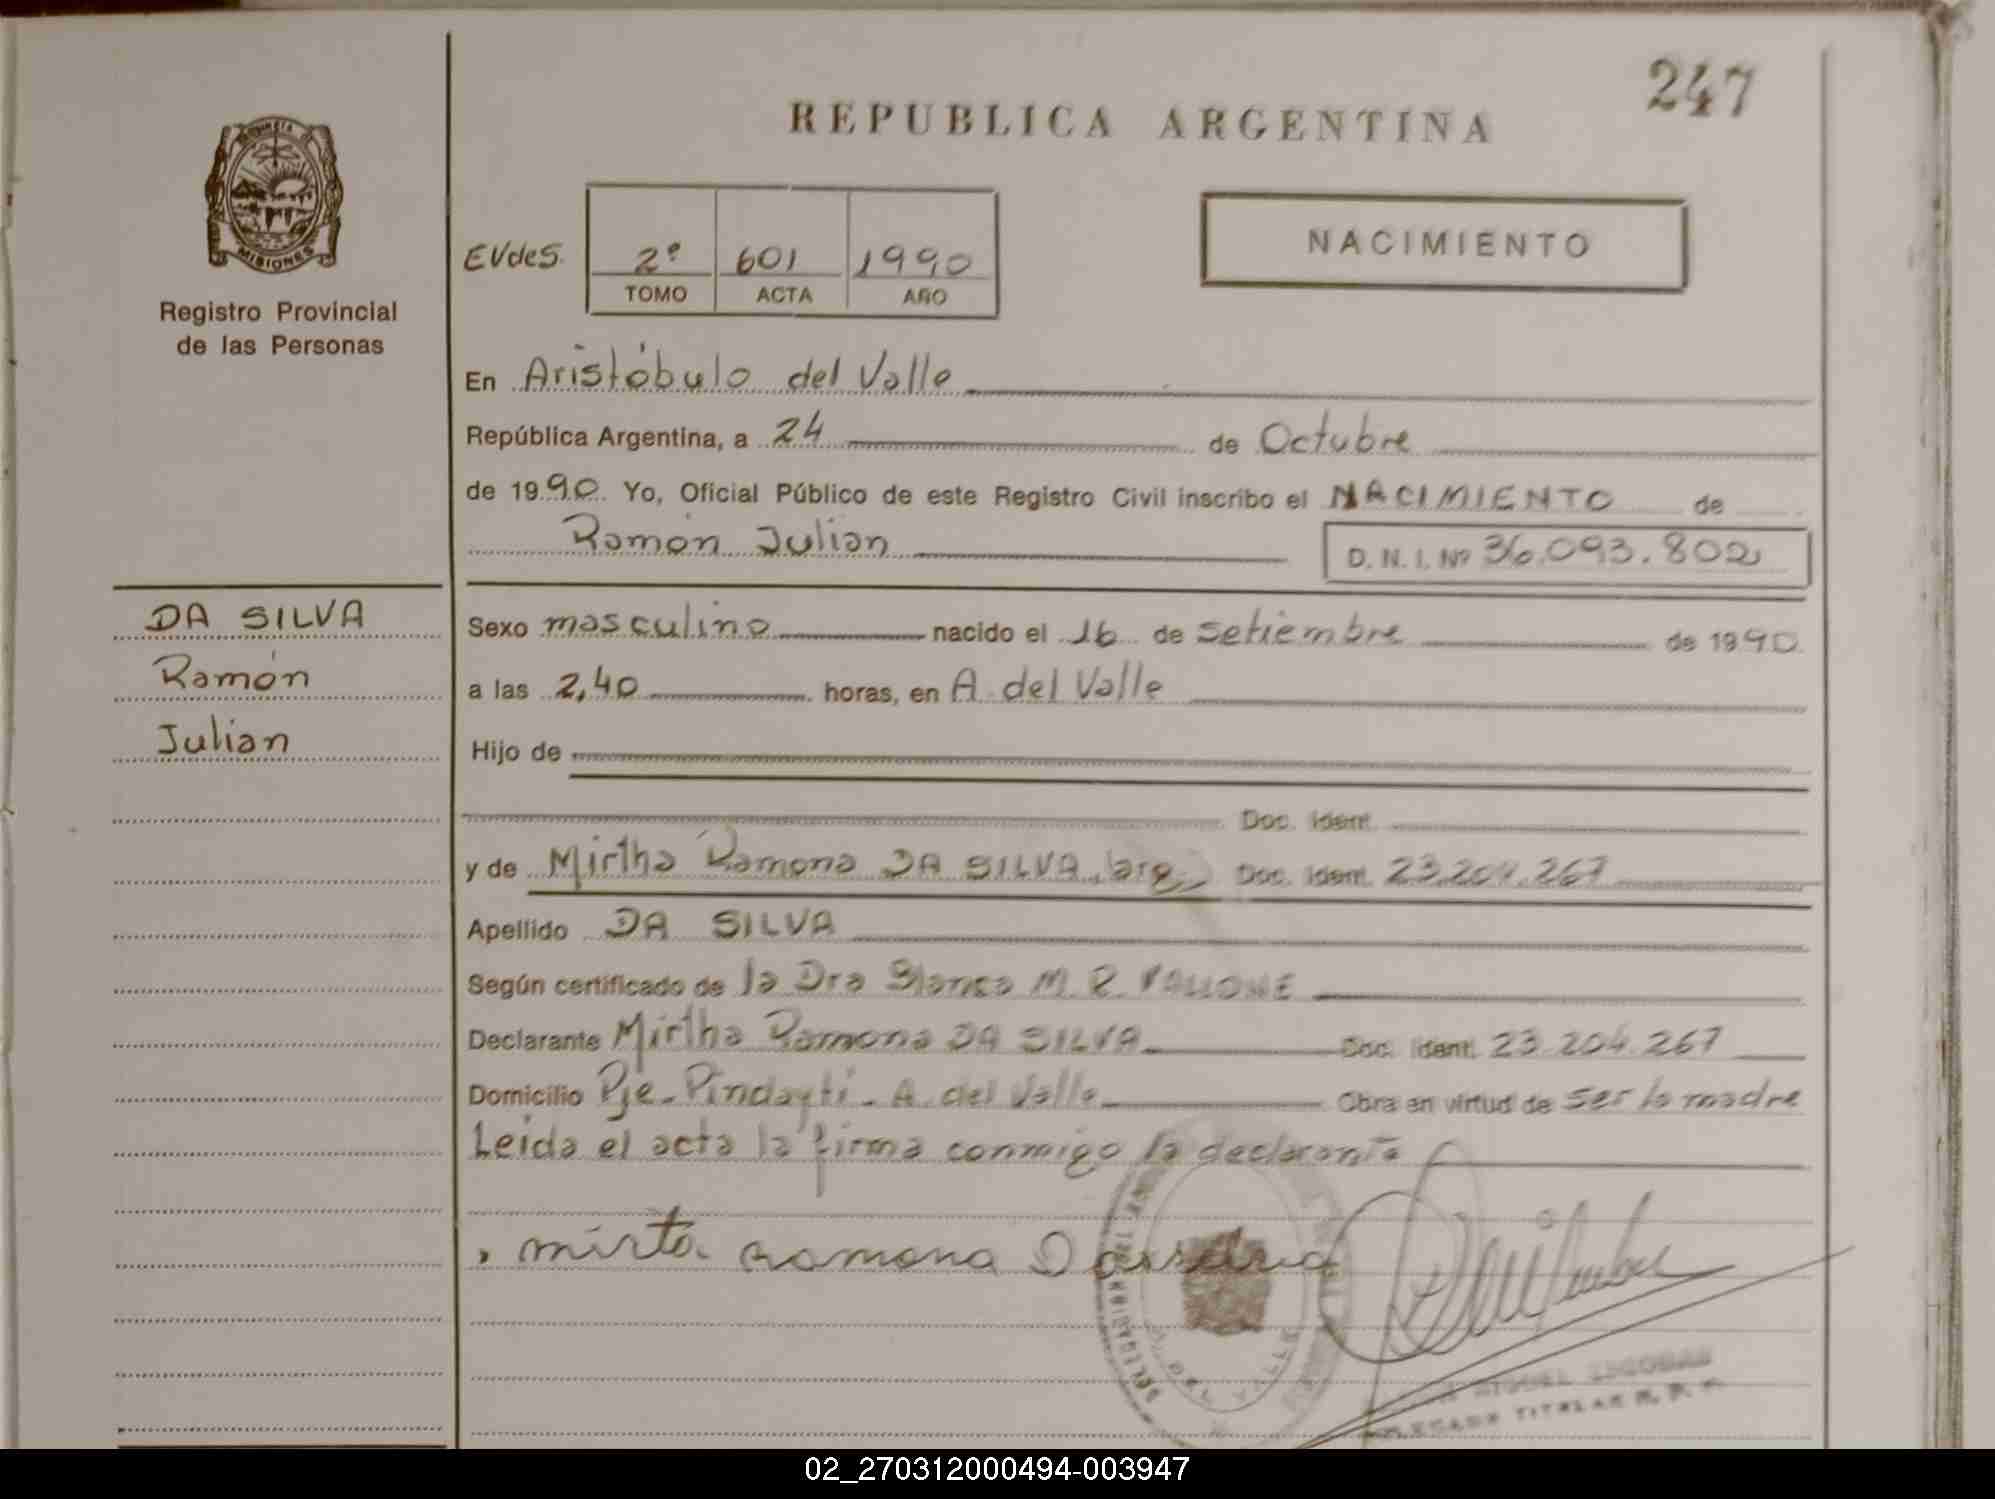 247
REPUBLICA ARGENTINA
PROVINCIA
MISIONES
Registro Provincial
de las Personas
EVdeS. 2º 601 1990
TOMO ACTA AÑO
NACIMIENTO
En Aristóbulo del Valle
República Argentina, a 24 de Octubre
de 1990. Yo, Oficial Público de este Registro Civil inscribo el NACIMIENTO de
Ramón Julián
D. N. I. Nº 36.093.802
DA SILVA
Ramón
Julian
Sexo masculino nacido el 16 de setiembre de 1990
a las 2,40 horas, en A. del Valle
Hijo de
Doc. Ident.
y de Mirtha Ramona DA SILVA, arg. Doc. Ident. 23.204.267
Apellido DA SILVA
Según certificado de la Dra Blanca M. R.
Declarante Mirtha Ramona DA SILVA Doc. Ident. 23.204.267
Domicilio Pje. Pindayti - A. del Valle Obra en virtud de ser la madre
Leida el acta la firma conmigo la declarante
mirta Ramona
DEL VALLE
MIGUEL ESCOBAR
DELEGADO TITULAR R. P. P.
02_270312000494-003947